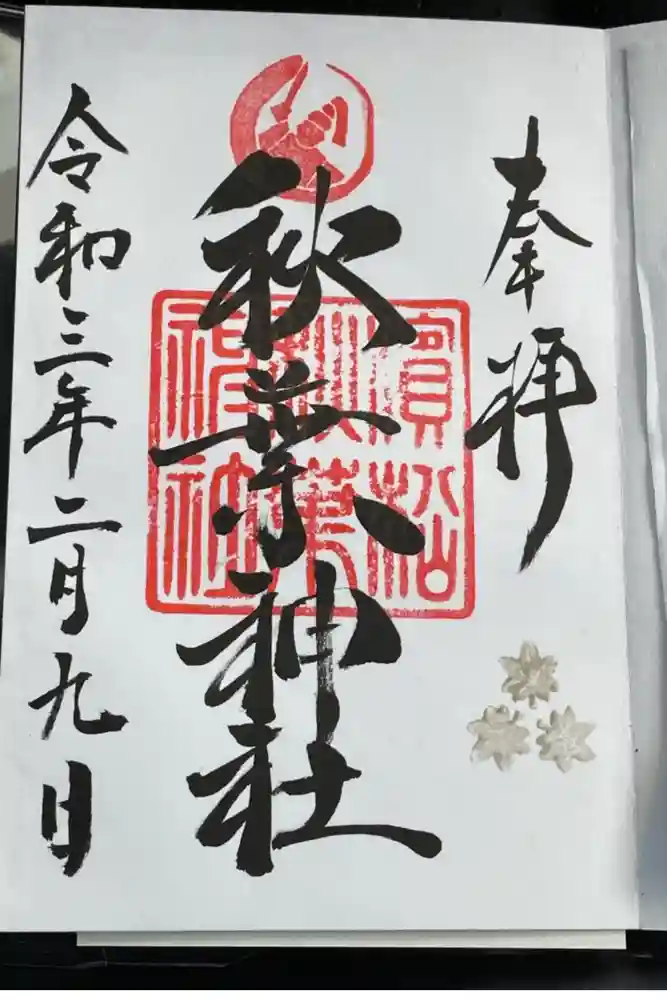 奉拝
秋葉神社
濱松
秋葉
神社
令和三年二月九日